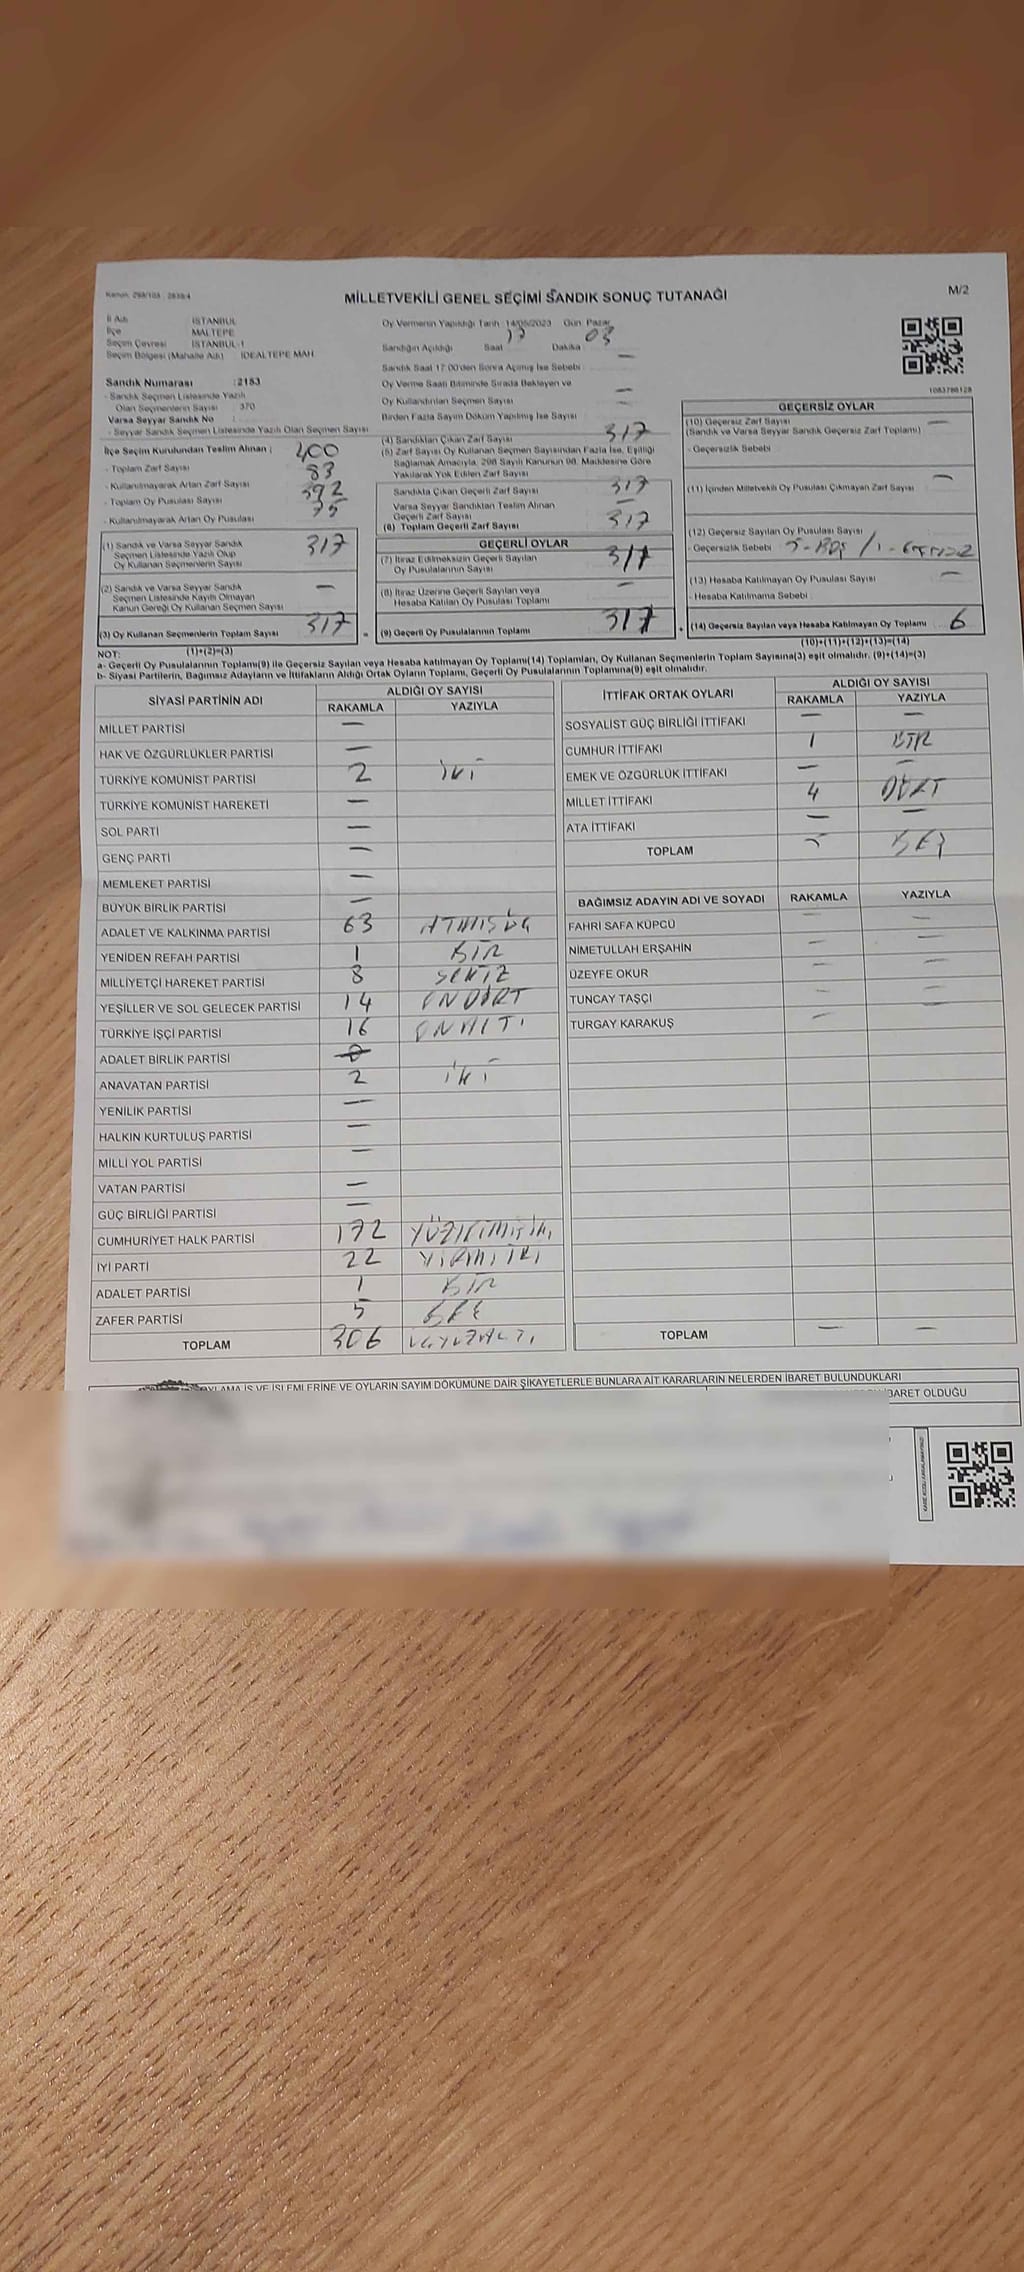 Kanun: 298/105 - 2839/4
MİLLETVEKİLİ GENEL SEÇİMİ SANDIK SONUÇ TUTANAĞI
M/2
İl Adı İSTANBUL
İlçe MALTEPE
Seçim Çevresi İSTANBUL-1
Seçim Bölgesi (Mahalle Adı) İDEALTEPE MAH
Sandık Numarası : 2153
- Sandık Seçmen Listesinde Yazılı
Olan Seçmenlerin Sayısı : 370
Varsa Seyyar Sandık No
- Seyyar Sandık Seçmen Listesinde Yazılı Olan Seçmen Sayısı
Oy Vermenin Yapıldığı Tarih 14/05/2023 Gün Pazar
Sandığın Açıldığı Saat 17 Dakika 03
Sandık Saat 17:00'den Sonra Açılmış İse Sebebi —
Oy Verme Saati Bitiminde Sırada Bekleyen ve
Oy Kullandırılan Seçmen Sayısı —
Birden Fazla Sayım Döküm Yapılmış İse Sayısı —
1083786128
İlçe Seçim Kurulundan Teslim Alınan ;
- Toplam Zarf Sayısı 400
- Kullanılmayarak Artan Zarf Sayısı 83
- Toplam Oy Pusulası Sayısı 392
- Kullanılmayarak Artan Oy Pusulası 75
(1) Sandık ve Varsa Seyyar Sandık
Seçmen Listesinde Yazılı Olup
Oy Kullanan Seçmenlerin Sayısı 317
(2) Sandık ve Varsa Seyyar Sandık
Seçmen Listesinde Kayıtlı Olmayan
Kanun Gereği Oy Kullanan Seçmen Sayısı —
(3) Oy Kullanan Seçmenlerin Toplam Sayısı 317 =
(1)+(2)=(3)
(4) Sandıktan Çıkan Zarf Sayısı 317
(5) Zarf Sayısı Oy Kullanan Seçmen Sayısından Fazla İse, Eşitliği
Sağlamak Amacıyla, 298 Sayılı Kanunun 98. Maddesine Göre
Yakılarak Yok Edilen Zarf Sayısı
Sandıkta Çıkan Geçerli Zarf Sayısı 317
Varsa Seyyar Sandıktan Teslim Alınan
Geçerli Zarf Sayısı —
(6) Toplam Geçerli Zarf Sayısı 317
GEÇERLİ OYLAR
(7) İtiraz Edilmeksizin Geçerli Sayılan
Oy Pusulalarının Sayısı 317
(8) İtiraz Üzerine Geçerli Sayılan veya
Hesaba Katılan Oy Pusulası Toplamı —
(9) Geçerli Oy Pusulalarının Toplamı 317 +
GEÇERSİZ OYLAR
(10) Geçersiz Zarf Sayısı —
(Sandık ve Varsa Seyyar Sandık Geçersiz Zarf Toplamı)
- Geçersizlik Sebebi
(11) İçinden Milletvekili Oy Pusulası Çıkmayan Zarf Sayısı —
(12) Geçersiz Sayılan Oy Pusulası Sayısı
- Geçersizlik Sebebi 5-BOŞ / 1-GEÇERSİZ
(13) Hesaba Katılmayan Oy Pusulası Sayısı —
- Hesaba Katılmama Sebebi
(14) Geçersiz Sayılan veya Hesaba Katılmayan Oy Toplamı 6
(10)+(11)+(12)+(13)=(14)
NOT:
a- Geçerli Oy Pusulalarının Toplamı(9) ile Geçersiz Sayılan veya Hesaba katılmayan Oy Toplamı(14) Toplamları, Oy Kullanan Seçmenlerin Toplam Sayısına(3) eşit olmalıdır. (9)+(14)=(3)
b- Siyasi Partilerin, Bağımsız Adayların ve İttifakların Aldığı Ortak Oyların Toplamı, Geçerli Oy Pusulalarının Toplamına(9) eşit olmalıdır.
SİYASİ PARTİNİN ADI ALDIĞI OY SAYISI
RAKAMLA YAZIYLA
MİLLET PARTİSİ —
HAK VE ÖZGÜRLÜKLER PARTİSİ —
TÜRKİYE KOMÜNİST PARTİSİ 2 İKİ
TÜRKİYE KOMÜNİST HAREKETİ —
SOL PARTİ —
GENÇ PARTİ —
MEMLEKET PARTİSİ —
BÜYÜK BİRLİK PARTİSİ —
ADALET VE KALKINMA PARTİSİ 63 ATMIŞÜÇ
YENİDEN REFAH PARTİSİ 1 BİR
MİLLİYETÇİ HAREKET PARTİSİ 8 SEKİZ
YEŞİLLER VE SOL GELECEK PARTİSİ 14 ONDÖRT
TÜRKİYE İŞÇİ PARTİSİ 16 ONALTI
ADALET BİRLİK PARTİSİ
ANAVATAN PARTİSİ 2 İKİ
YENİLİK PARTİSİ —
HALKIN KURTULUŞ PARTİSİ —
MİLLİ YOL PARTİSİ —
VATAN PARTİSİ —
GÜÇ BİRLİĞİ PARTİSİ —
CUMHURİYET HALK PARTİSİ 172
İYİ PARTİ 22 YİRMİİKİ
ADALET PARTİSİ 1 BİR
ZAFER PARTİSİ 5 BEŞ
TOPLAM 306 ÜÇYÜZALTI
İTTİFAK ORTAK OYLARI ALDIĞI OY SAYISI
RAKAMLA YAZIYLA
SOSYALİST GÜÇ BİRLİĞİ İTTİFAKI — —
CUMHUR İTTİFAKI 1 BİR
EMEK VE ÖZGÜRLÜK İTTİFAKI — —
MİLLET İTTİFAKI 4 DÖRT
ATA İTTİFAKI — —
TOPLAM 5 BEŞ
BAĞIMSIZ ADAYIN ADI VE SOYADI RAKAMLA YAZIYLA
FAHRİ SAFA KÜPCÜ — —
NİMETULLAH ERŞAHİN — —
ÜZEYFE OKUR — —
TUNCAY TAŞÇI — —
TURGAY KARAKUŞ —
TOPLAM — —
OYLAMA İŞ VE İŞLEMLERİNE VE OYLARIN SAYIM DÖKÜMÜNE DAİR ŞİKAYETLERLE BUNLARA AİT KARARLARIN NELERDEN İBARET BULUNDUKLARI
İBARET OLDUĞU